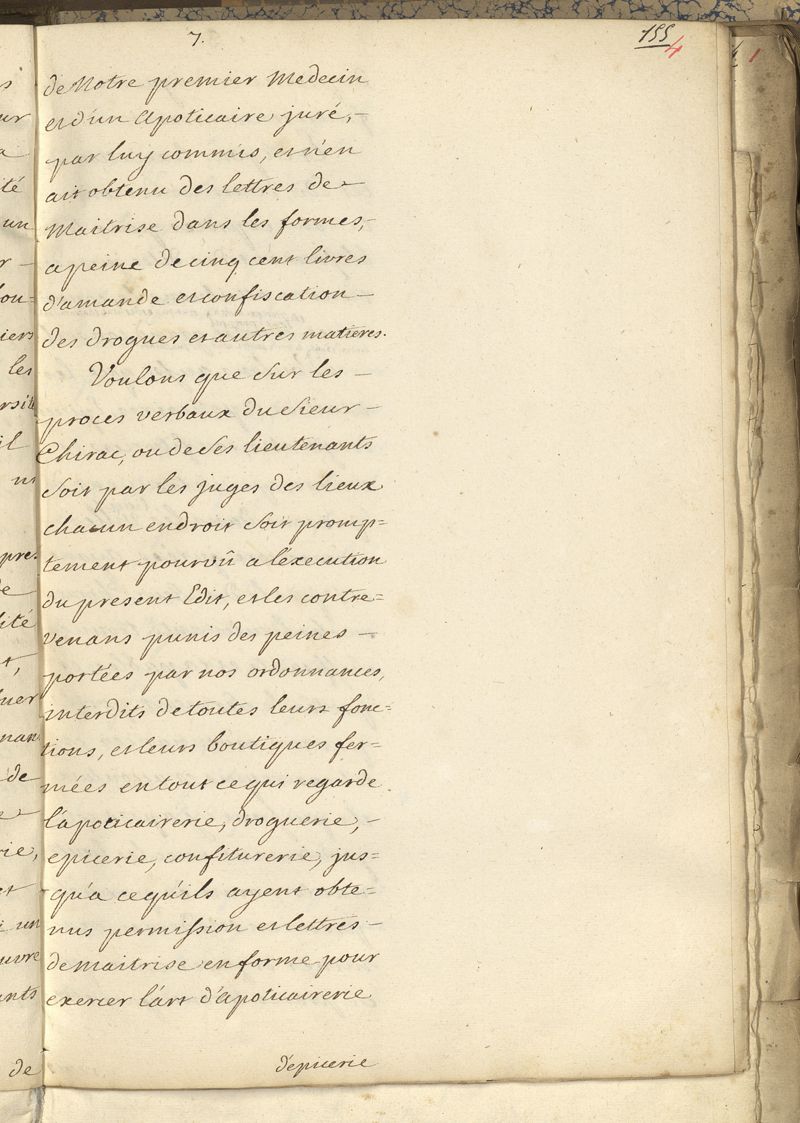 7.
155
4
1
de Notre premier Medecin
et d'un Apoticaire juré, –
par luy commis, et n'en
ait obtenu des lettres de –
Maitrise dans les formes, –
a peine de cinq cent livres
d'amande et confiscation –
des drogues et autres matieres.
Voulons que sur les –
proces verbaux du sieur –
Chirac, ou de ses lieutenants
soit par les juges des lieux
chacun endroit soit promp=
tement pourvû a l'execution
du present Edit, et les contre=
venans punis des peines –
portées par nos ordonnances,
interdits de toutes leurs fonc=
tions, et leurs boutiques fer=
mées en tout ce qui regarde
l'apoticairerie, droguerie, –
epicerie, confiturerie, jus=
qu'a ce qu'ils ayent obte=
nus permission et lettres –
de maitrise en forme pour
exercer l'art d'apoticairerie
d'epicerie